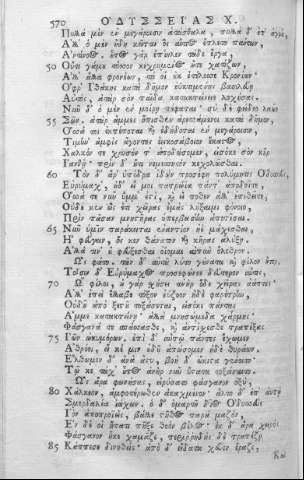 570 ΟΔΥΣΣΕΙΑΣ Χ.
Πολλὰ μὲν ἐν μεγάροισιν ἀτάσθαλα, πολλὰ δ' ἐπ' ἀγροῦ,
Ἀλλ' ὁ μὲν ἤδη κεῖται ὃς αἴτιος ἔπλετο πάντων,
Ἀντίνοος. οὗτος γὰρ ἐπίηλεν τάδε ἔργα,
50 Οὔτι γάμου τόσσον κεχρημένος οὐδὲ χατίζων,
Ἀλλ' ἄλλα φρονέων, τά οἱ οὐκ ἐτέλεσσε Κρονίων·
Ὄφρ' Ἰθάκης κατὰ δῆμον ἐϋκτιμένης βασιλεύῃ
Αὐτὸς, ἀτὰρ σὸν παῖδα κατακτείνειε λοχήσας.
Νῦν δ' ὁ μὲν ἐν μοίρῃ πέφαται· σὺ δὲ φείδεο λαῶν
55 Σῶν. ἀτὰρ ἄμμες ὄπισθεν ἀρεσσάμενοι κατὰ δῆμον,
Ὅσσα τοι ἐκπέποται καὶ ἐδήδοται ἐν μεγάροισι,
Τιμὴν ἀμφὶς ἄγοντες ἐεικοσάβοιον ἕκαστος,
Χαλκόν τε χρυσόν τ' ἀποδώσομεν, εἰσόκε σὸν κῆρ
Ἰανθῇ· πρὶν δ' οὔτι νεμεσσητὸν κεχολῶσθαι.
60 Τὸν δ' ἄρ' ὑπόδρα ἰδὼν προσέφη πολύμητις Ὀδυσσεύς·
Εὐρύμαχ', οὐδ' εἴ μοι πατρώϊα πάντ' ἀποδοῖτε,
Ὅσσα τε νῦν ὔμμ' ἐστὶ, καὶ εἴ ποθεν ἄλλ' ἐπιθεῖτε,
Οὐδέ κεν ὣς ἔτι χεῖρας ἐμὰς λήξαιμι φόνοιο,
Πρὶν πᾶσαν μνηστῆρας ὑπερβασίην ἀποτῖσαι.
65 Νῦν ὑμῖν παράκειται ἐναντίον ἠὲ μάχεσθαι,
Ἢ φεύγειν, ὅς κεν θάνατον καὶ κῆρας ἀλύξῃ.
Ἀλλά τιν' οὐ φεύξεσθαι ὀΐομαι αἰπὺν ὄλεθρον.
Ὣς φάτο. τῶν δ' αὐτοῦ λύτο γούνατα καὶ φίλον ἦτορ.
Τοῖσιν δ' Εὐρύμαχος προσεφώνεε δεύτερον αὖτις·
70 Ὦ φίλοι, οὐ γὰρ σχήσει ἀνὴρ ὅδε χεῖρας ἀάπτους·
Ἀλλ' ἐπεὶ ἔλλαβε τόξον ἐΰξοον ἠδὲ φαρέτρην,
Οὐδοῦ ἄπο ξεστοῦ τοξάσσεται, εἰσόκε πάντας
Ἄμμε κατακτείνῃ· ἀλλὰ μνησώμεθα χάρμης·
Φάσγανά τε σπάσσασθε, καὶ ἀντίσχεσθε τραπέζας
75 Ἰῶν ὠκυμόρων, ἐπὶ δ' αὐτῷ πάντες ἔχωμεν
Ἀθρόοι, εἴ κέ μιν οὐδοῦ ἀπώσομεν ἠδὲ θυράων.
Ἔλθωμεν δ' ἀνὰ ἄστυ, βοὴ δ' ὤκιστα γένοιτο·
Τῷ κε τάχ' οὗτος ἀνὴρ νῦν ὕστατα τοξάσσαιτο.
Ὣς ἄρα φωνήσας, εἰρύσσατο φάσγανον ὀξὺ,
80 Χάλκεον, ἀμφοτέρωθεν ἀκαχμένον· ἆλτο δ' ἐπ' αὐτῷ
Σμερδαλέα ἰάχων. ὁ δ' ὁμαρτῇ δῖος Ὀδυσσεὺς
Ἰὸν ἀποπροΐεις, βάλλε στῆθος παρὰ μαζὸν,
Ἐν δέ οἱ ἥπατι πῆξε θοὸν βέλος· ἐκ δ' ἄρα χειρὸς
Φάσγανον ἧκε χαμᾶζε, περιρρηδὴς δὲ τραπέζῃ
85 Κάππεσε δινηθείς· ἀπὸ δ' εἴδατα χεῦεν ἔραζε,
Καὶ